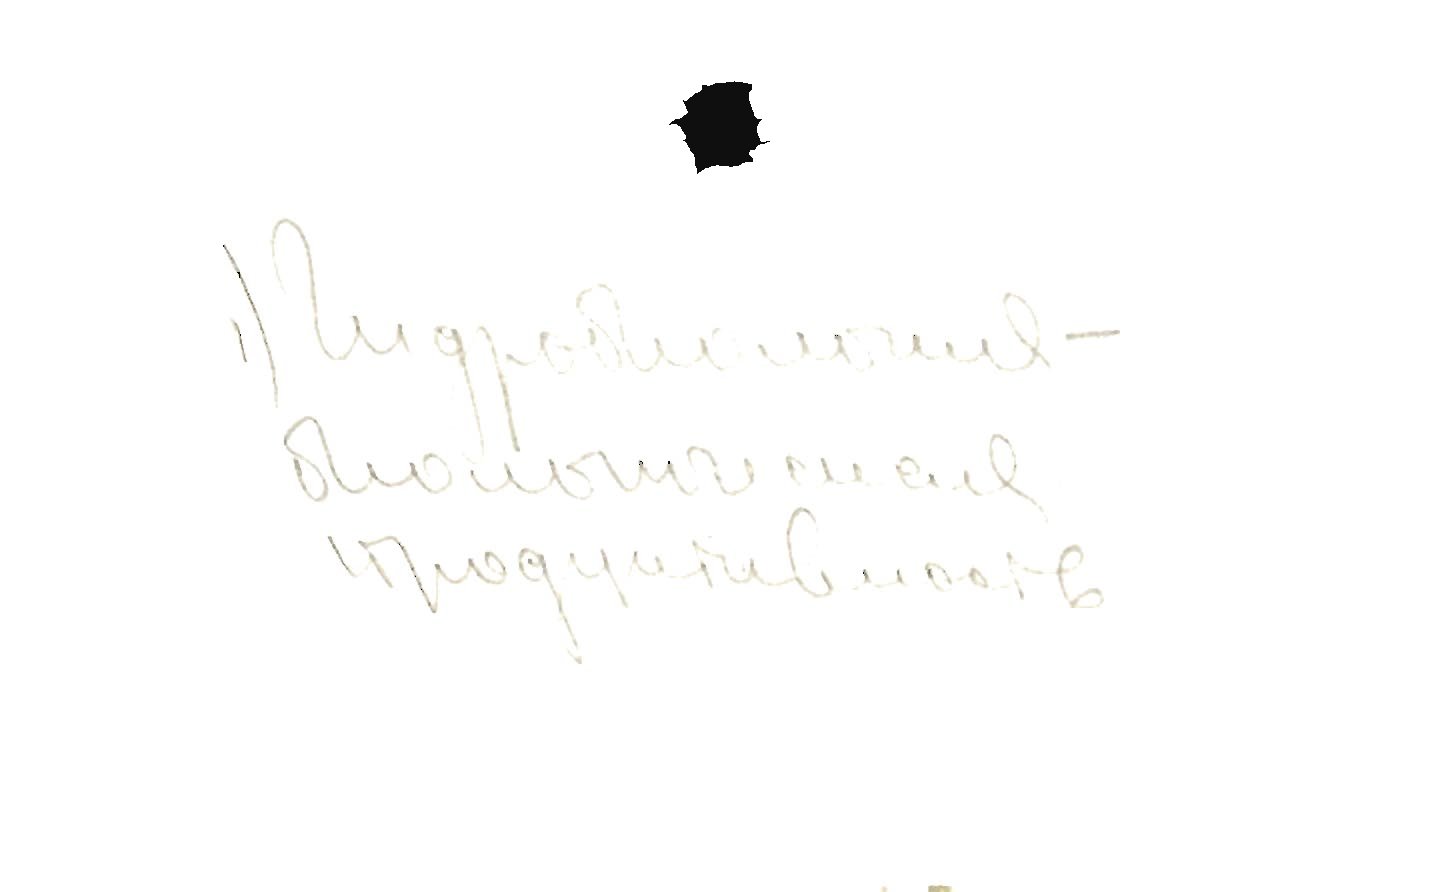 1) Гидробиология —
биологическая
продуктивность